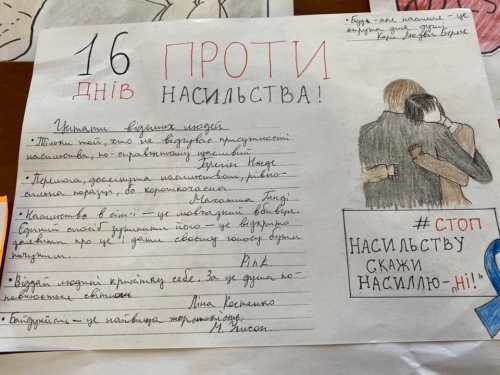 16 ДНІВ ПРОТИ НАСИЛЬСТВА!
• Будь-яке насилля – це
отрута для душі
Карл Людвіг Берне
Цитати відомих людей
• Тільки той, хто не відчуває присутності
насильства, по-справжньому щасливий
Нжде
• Перемога, досягнута насильством, рівно-
сильна поразці, бо короткочасна.
Махатма Ганді
• Насильство в сім'ї – це мовчазний вбивця.
Єдиний спосіб зупинити його – це відкрито
заявити про це і дати своєму голосу бути
почутим.
Pink
• Віддай людині крихітку себе. За це душа по-
повнюється світлом
Ліна Костенко
• Байдужість – це найвища жорстокість.
М. Уисон.
# СТОП
НАСИЛЬСТВУ
СКАЖИ
НАСИЛЛЮ – „НІ!"